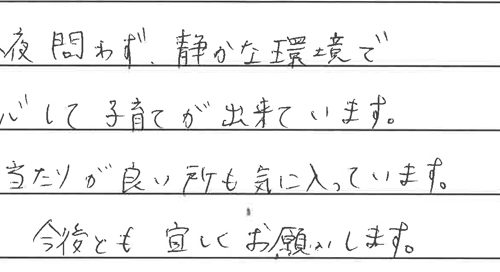 夜問わず、静かな環境で
して子育てが出来ています。
当たりが良い所も気に入っています。
今後とも宜しくお願いします。